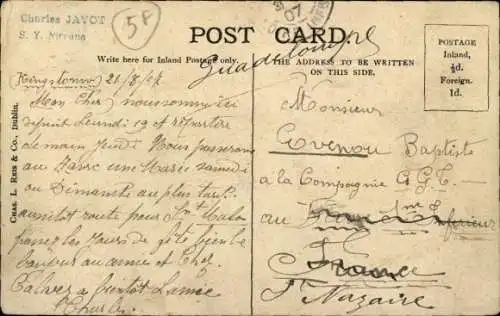 Charles JAYOT
S. Y. Nirvana
58
07
POST CARD.
Write here for Inland Postage only.
THE ADDRESS TO BE WRITTEN
ON THIS SIDE.
POSTAGE
Inland,
½d.
Foreign.
1d.
CHAS. L. REIS & CO., DUBLIN.
Kingstown 21/8/07
Mon Cher nous sommes ici
depuis Lundi 19 et
demain Jeudi Nous passerons
au Havre une Marée samedi
ou Dimanche au plus tard
aussitot route pour St Malo
les Jours de fête
Bonjour au amie et Chez
Calvez a bientôt Lamie
Charles
Monsieur
Evenou Baptiste
à la Compagnie G G T
au
inférieur
France
St Nazaire